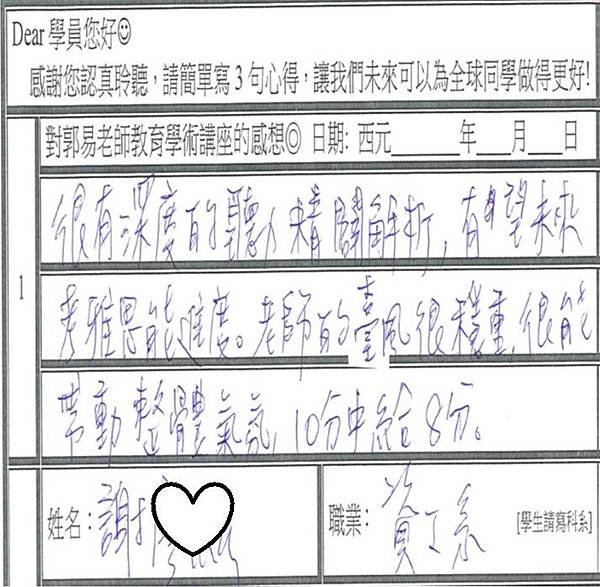 Dear 學員您好☺
感謝您認真聆聽，請簡單寫 3 句心得，讓我們未來可以為全球同學做得更好!
對郭易老師教育學術講座的感想◎ 日期: 西元______年___月___日
1
很有深度的聽力精闢解析，有望未來
考雅思能進度。老師的臺風很穩重，很能
帶動整體氣氛，10分中給8分。
姓名：謝
職業： 資工系 [學生請寫科系]